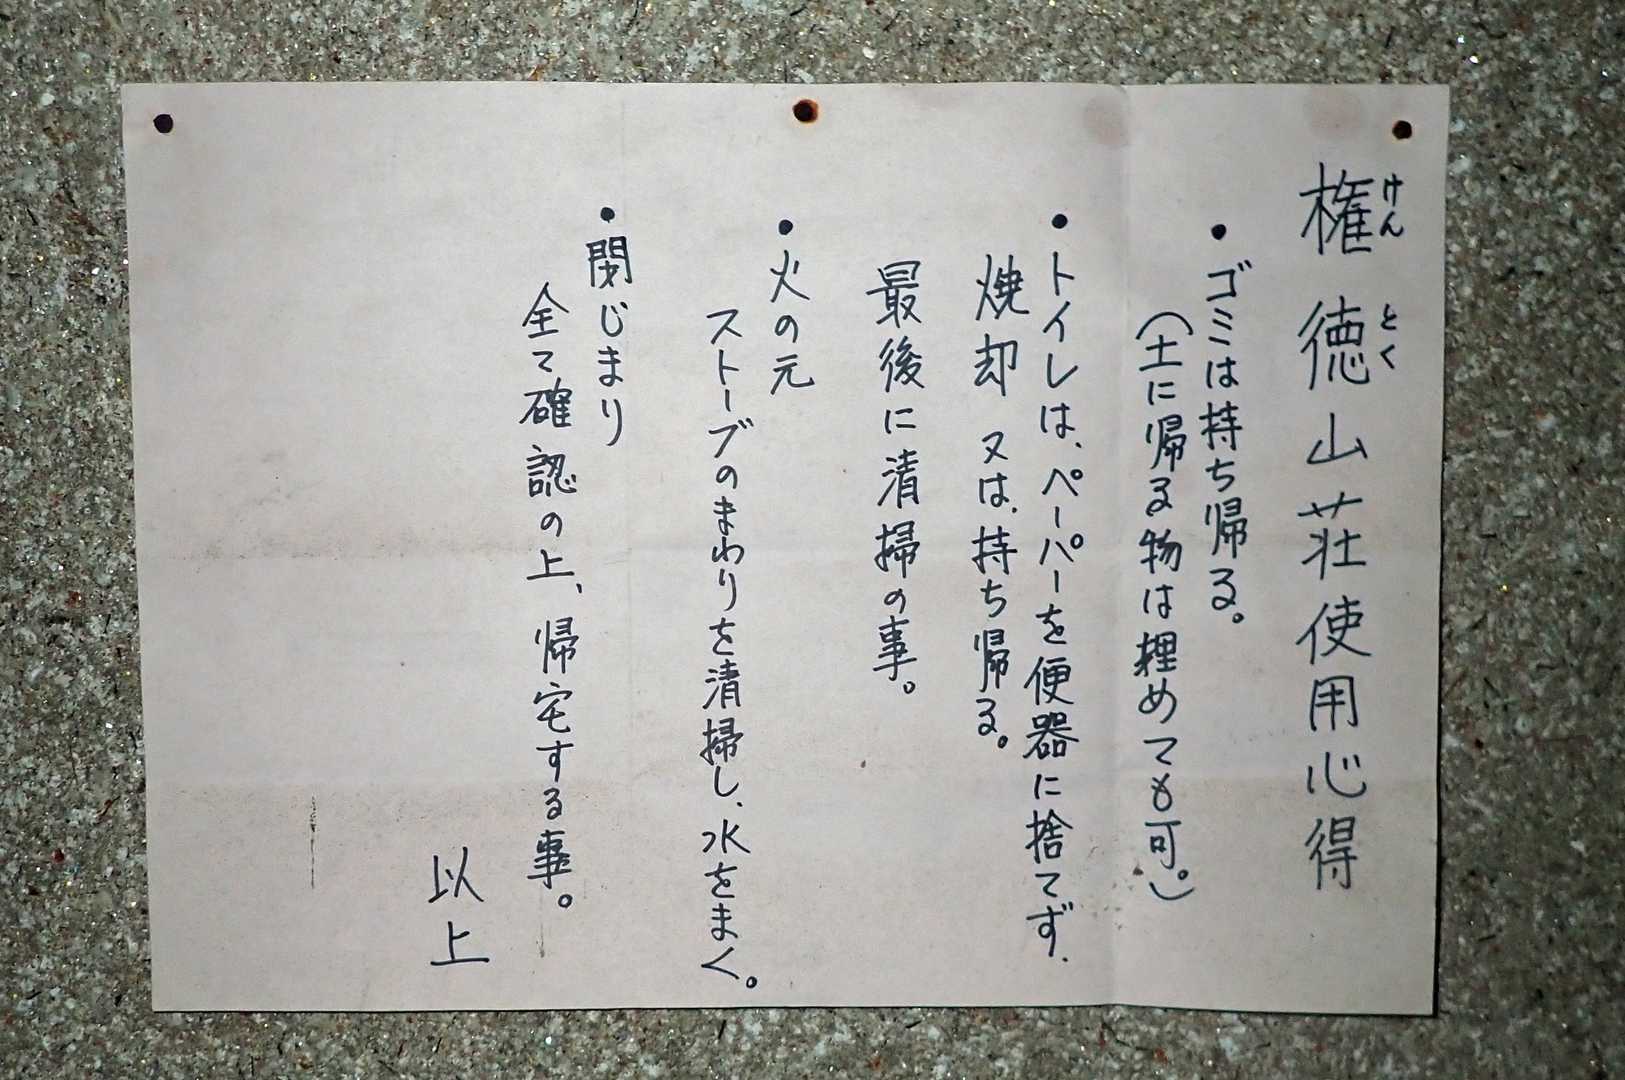 権徳山荘使用心得
けん とく
・ゴミは持ち帰る。
(土に帰る物は埋めても可。)
・トイレは、ペーパーを便器に捨てず、
焼却 又は、持ち帰る。
最後に清掃の事。
・火の元
ストーブのまわりを清掃し、水をまく。
・閉じまり
全て確認の上、帰宅する事。
以上